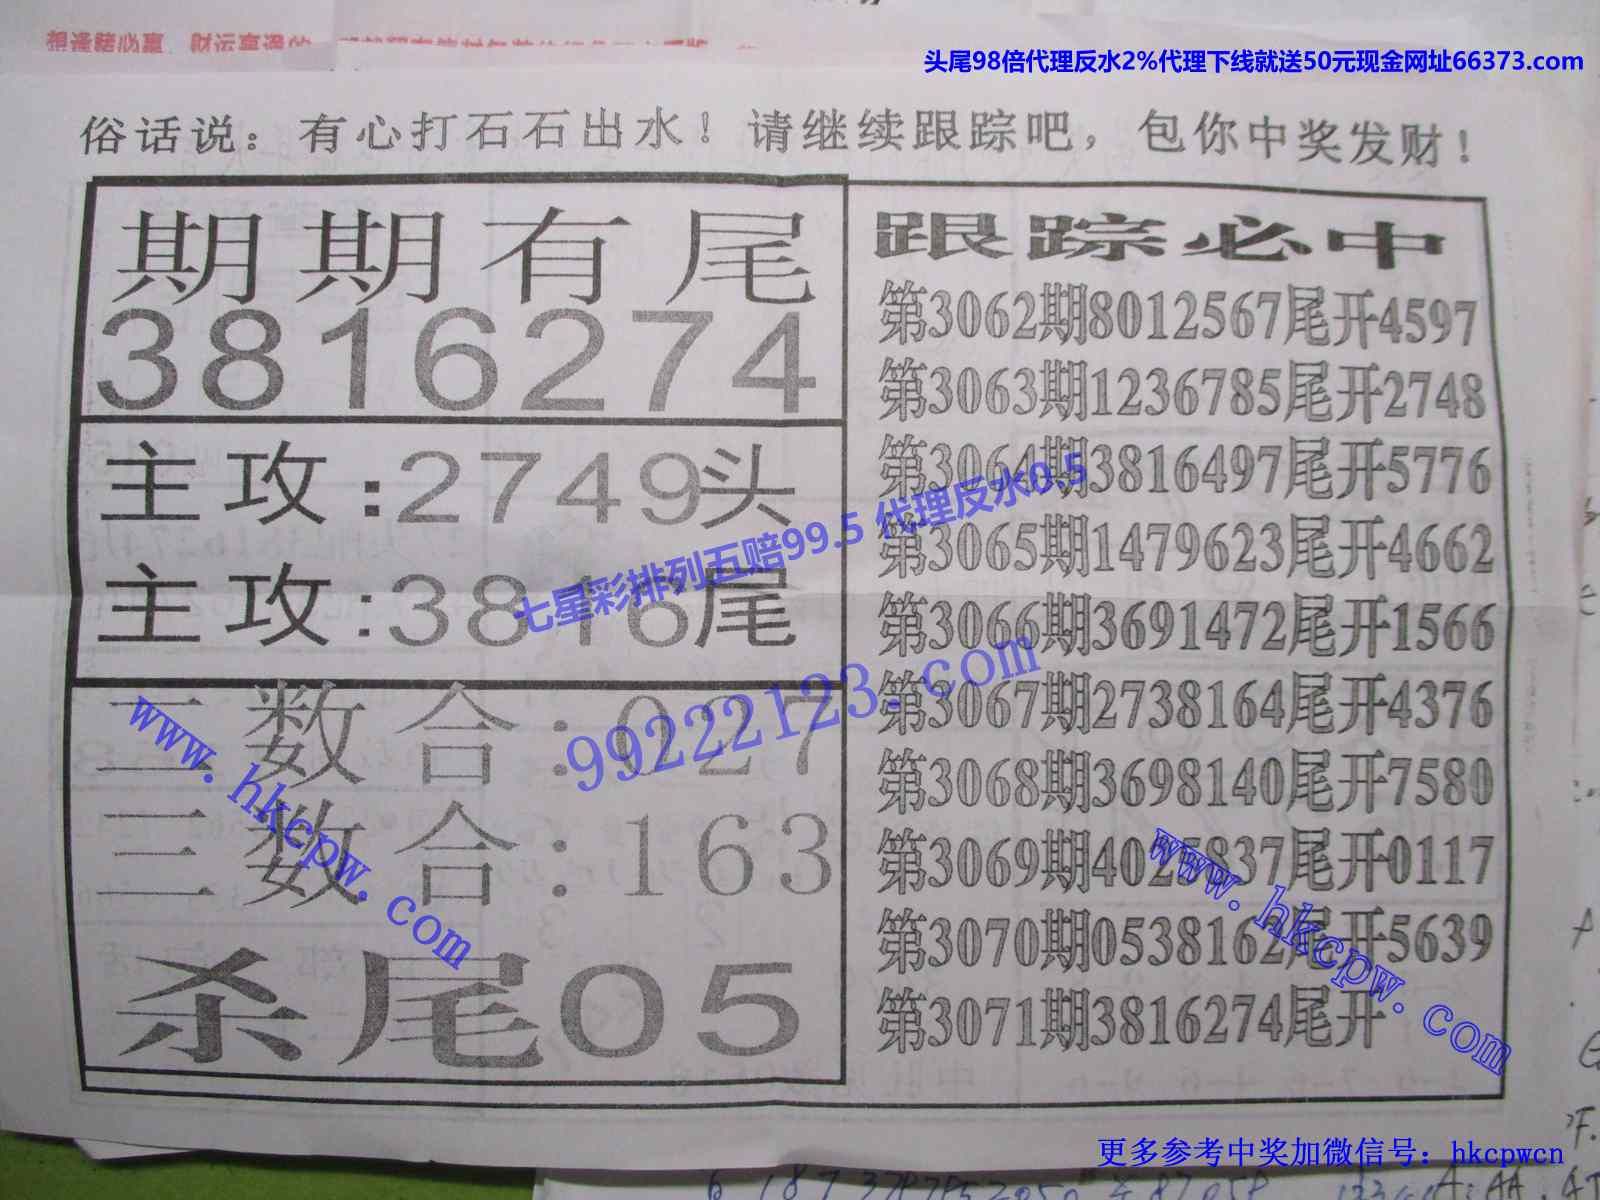 想逢赌必赢
头尾98倍代理反水2%代理下线就送50元现金网址66373.com
俗话说：有心打石石出水！请继续跟踪吧，包你中奖发财！
期期有尾
3816274
主攻:2749头
主攻:3816尾
二数合:027
三数合:163
杀尾05
跟踪必中
第3062期8012567尾开4597
第3063期1236785尾开2748
第3064期3816497尾开5776
第3065期1479623尾开4662
第3066期3691472尾开1566
第3067期2738164尾开4376
第3068期3698140尾开7580
第3069期4025837尾开0117
第3070期0538162尾开5639
第3071期3816274尾开
七星彩排列五赔99.5 代理反水0.5
99222123.com
www.hkcpw.com
www.hkcpw.com
更多参考中奖加微信号：hkcpwcn